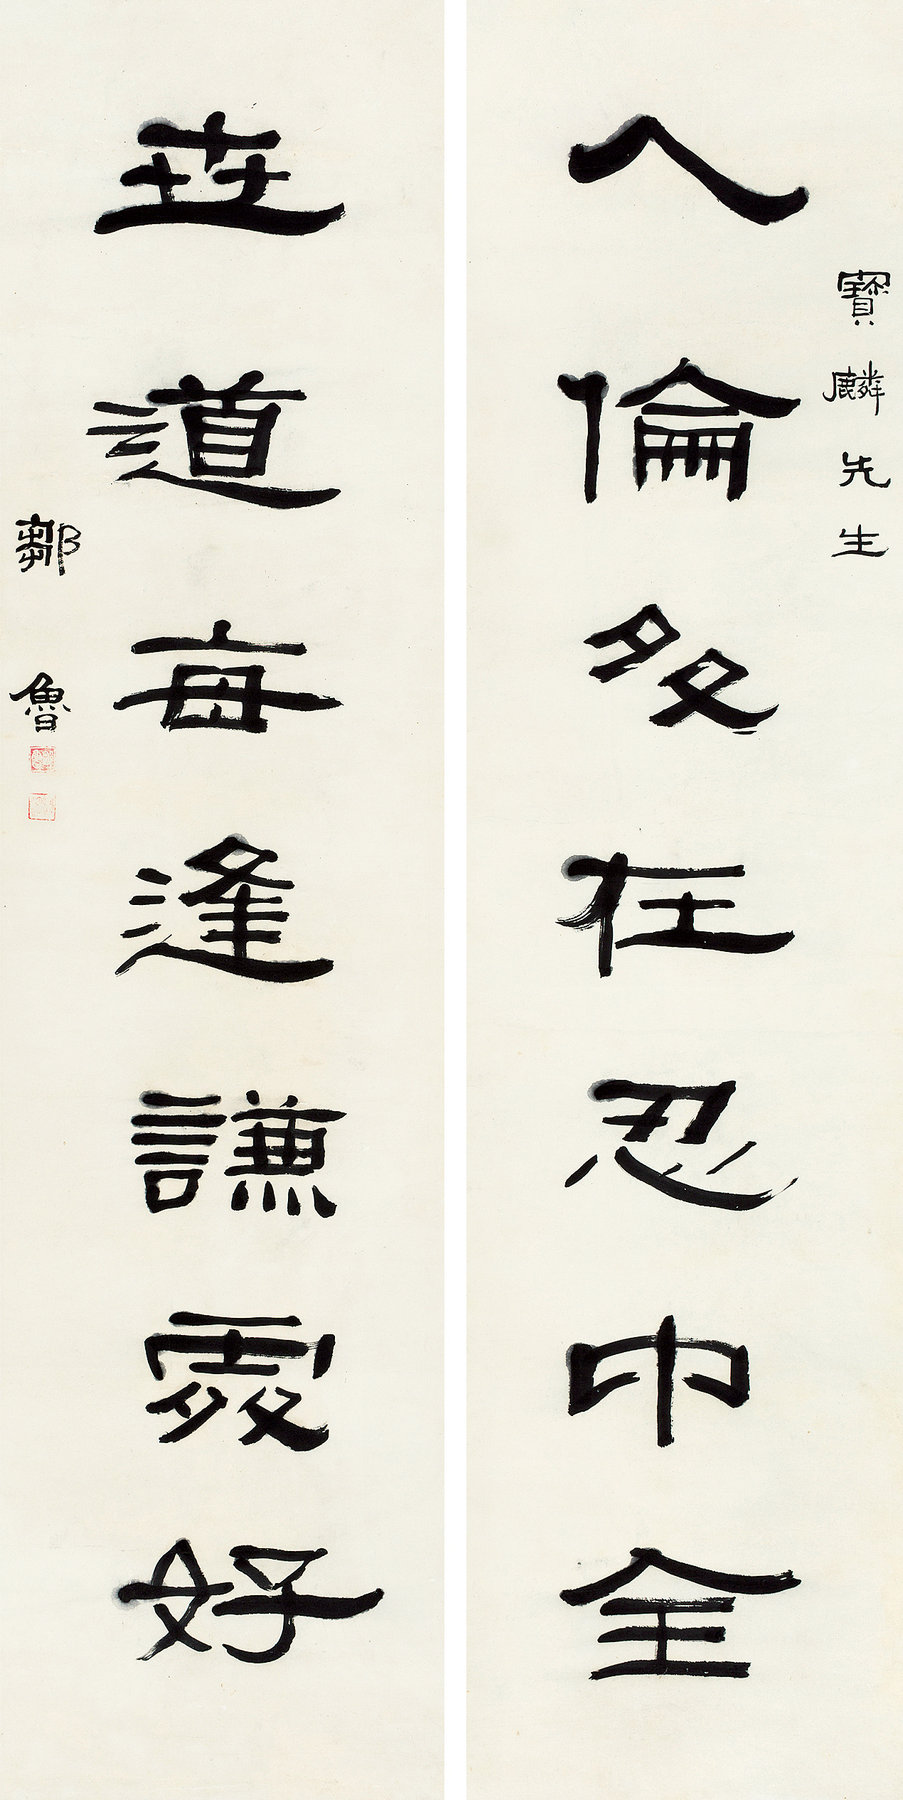 寶麟先生
人倫多在忍中全
世道每逢謙處好
鄒魯